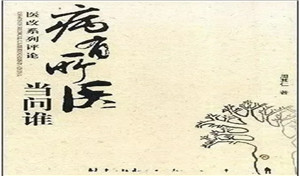 病有所医
当问谁
医改系列评论
周其仁 著